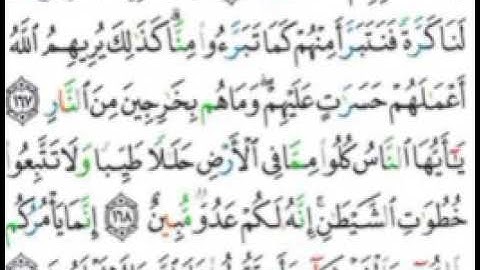 لَنَا كَرَّةً فَنَتَبَرَّأَ مِنْهُمْ كَمَا تَبَرَّءُوا۟ مِنَّا ۗ كَذَٰلِكَ يُرِيهِمُ ٱللَّهُ
أَعْمَـٰلَهُمْ حَسَرَٰتٍ عَلَيْهِمْ ۖ وَمَا هُم بِخَـٰرِجِينَ مِنَ ٱلنَّارِ ١٦٧
يَـٰٓأَيُّهَا ٱلنَّاسُ كُلُوا۟ مِمَّا فِى ٱلْأَرْضِ حَلَـٰلًا طَيِّبًا وَلَا تَتَّبِعُوا۟
خُطُوَٰتِ ٱلشَّيْطَـٰنِ ۚ إِنَّهُۥ لَكُمْ عَدُوٌّ مُّبِينٌ ١٦٨ إِنَّمَا يَأْمُرُكُم